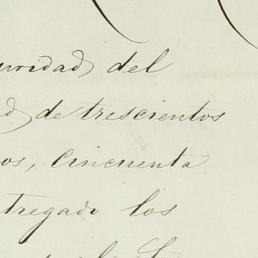 uridad del
d de trescientos
os, cincuenta
tregado los